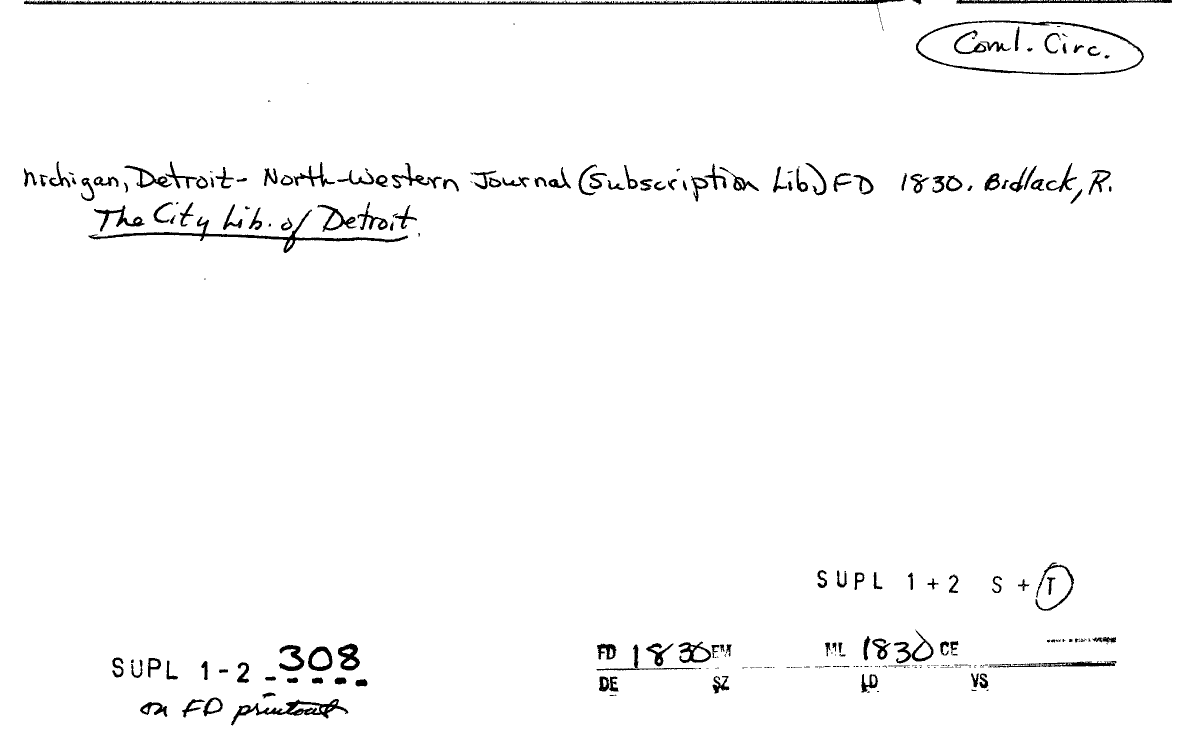 Coml. Circ.
Michigan, Detroit- North-Western Journal (Subscription Lib.) FD 1830. Bidlack, R.
The City Lib. of Detroit.
SUPL 1+2 S + T
SUPL 1-2 308
on FD printout
FD 1830 EM ML 1830 CE
DE SZ LD VS